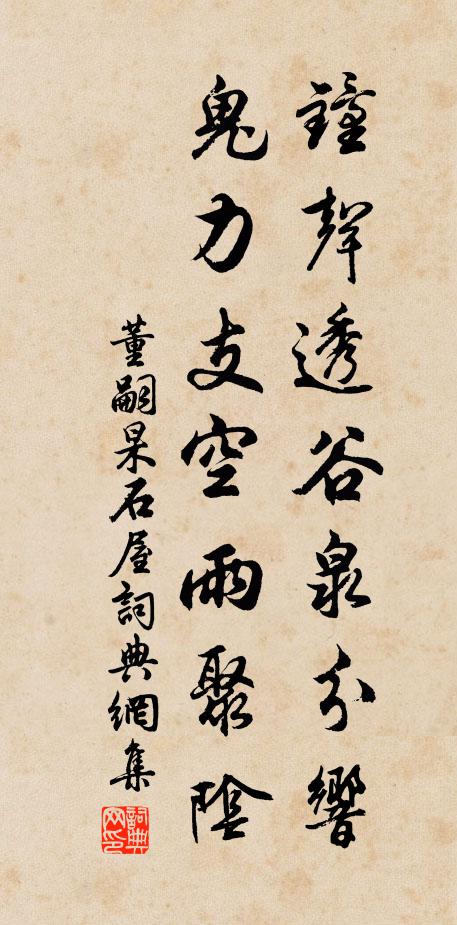 鐘聲透谷泉分響
鬼力支空雨聚陰
董嗣杲石屋詞典網集
詞典网印